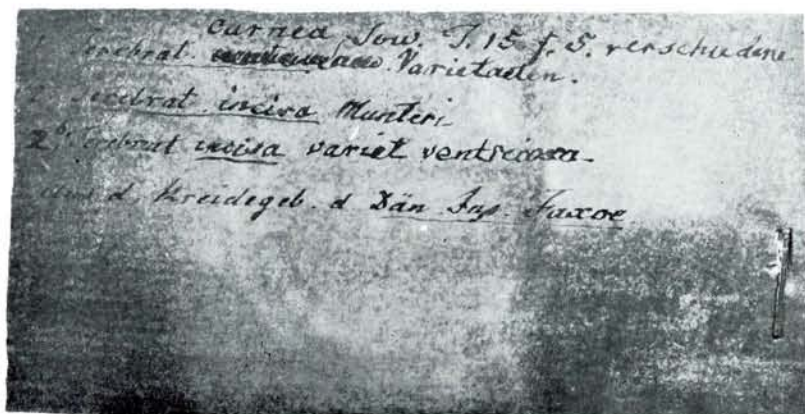 carnea Sow. T. 15 f. 5. verschiedene
1. Terebrat. Varietaeten.
2. Terebrat incisa Munteri
2b. Terebrat incisa variet ventricosa
aus d. Kreidegeb. d Dän. Ins. Faxoe